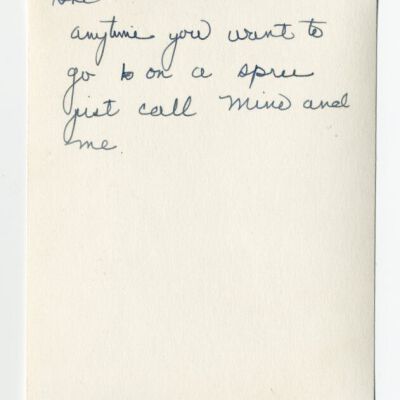 anytime you want to
go on a spree
just call Mine and
me.